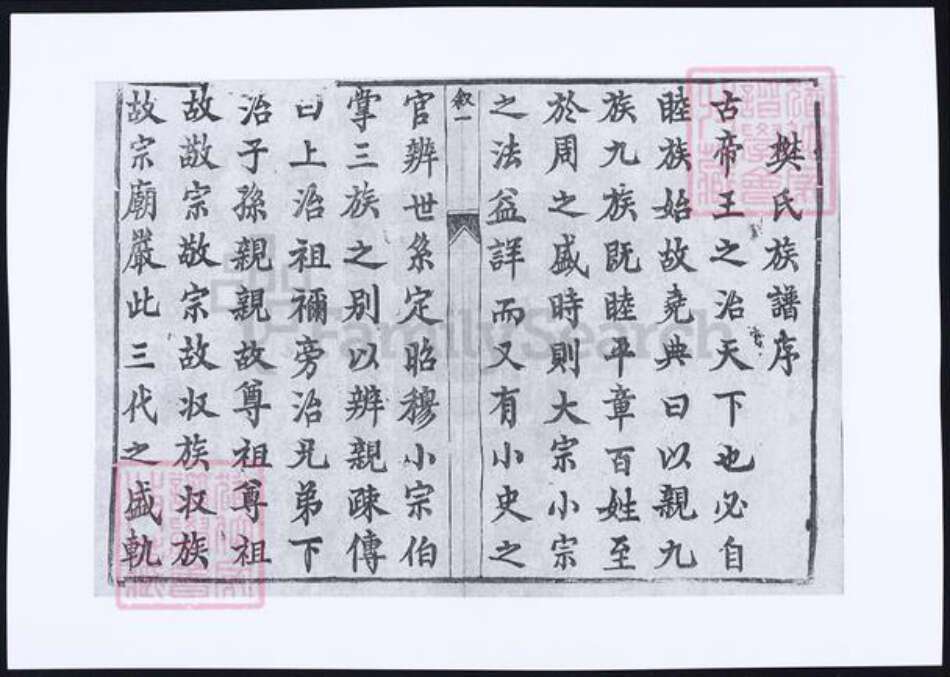 樊氏族譜序
古帝王之治天下也必自
睦族始故堯典曰以親九
族九族既睦平章百姓至
於周之盛時則大宗小宗
之法益詳而又有小史之
敘一
官辨世系定昭穆小宗伯
掌三族之别以辨親疎傳
曰上治祖禰旁治兄弟下
治子孫親親故尊祖尊祖
故敬宗敬宗故收族收族
故宗廟嚴此三代之盛軌
FamilySearch